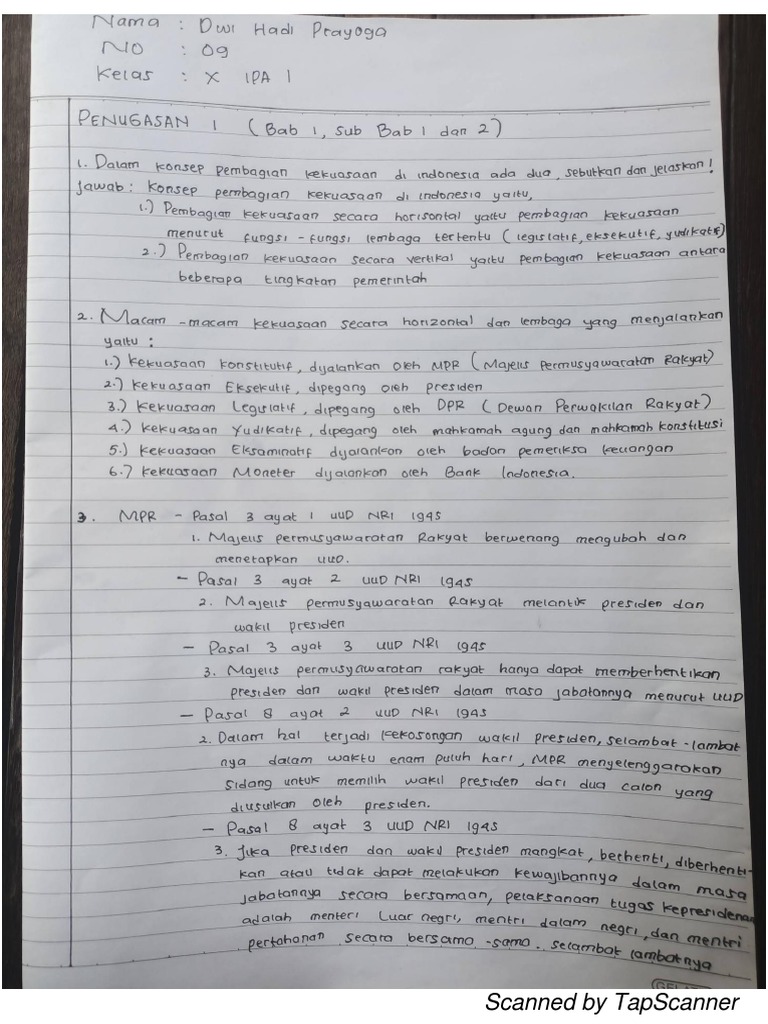 Nama : Dwi Hadi Prayoga
NO : 09
Kelas : X IPA 1
PENUGASAN 1 (Bab 1, sub Bab 1 dan 2)
1. Dalam konsep pembagian kekuasaan di indonesia ada dua, sebutkan dan jelaskan!
Jawab: Konsep pembagian kekuasaan di indonesia yaitu,
1.) Pembagian kekuasaan secara horisontal yaitu pembagian kekuasaan
menurut fungsi - fungsi lembaga tertentu (legislatif, eksekutif, yudikatif)
2.) Pembagian kekuasaan secara vertikal yaitu pembagian kekuasaan antara
beberapa tingkatan pemerintah
2. Macam - macam kekuasaan secara horizontal dan lembaga yang menjalankan
yaitu :
1.) Kekuasaan Konstitutif, dijalankan oleh MPR (Majelis Permusyawaratan Rakyat)
2.) Kekuasaan Eksekutif, dipegang oleh presiden
3.) Kekuasaan Legislatif, dipegang oleh DPR (Dewan Perwakilan Rakyat)
4.) Kekuasaan Yudikatif, dipegang oleh mahkamah agung dan mahkamah konstitusi
5.) Kekuasaan Eksaminatif dijalankan oleh badan pemeriksa keuangan
6.) Kekuasaan Moneter dijalankan oleh Bank Indonesia.
3. MPR - Pasal 3 ayat 1 UUD NRI 1945
1. Majelis permusyawaratan Rakyat berwenang mengubah dan
menetapkan UUD.
- Pasal 3 ayat 2 UUD NRI 1945
2. Majelis permusyawaratan Rakyat melantik presiden dan
wakil presiden
- Pasal 3 ayat 3 UUD NRI 1945
3. Majelis permusyawaratan rakyat hanya dapat memberhentikan
presiden dan wakil presiden dalam masa jabatannya menurut UUD
- Pasal 8 ayat 2 UUD NRI 1945
2. Dalam hal terjadi kekosongan wakil presiden, selambat - lambat
nya dalam waktu enam puluh hari, MPR menyelenggarakan
sidang untuk memilih wakil presiden dari dua calon yang
diusulkan oleh presiden.
- Pasal 8 ayat 3 UUD NRI 1945
3. Jika presiden dan wakil presiden mangkat, berhenti, diberhenti-
kan atau tidak dapat melakukan kewajibannya dalam masa
jabatannya secara bersamaan, pelaksanaan tugas kepresidenan
adalah menteri Luar negri, mentri dalam negri, dan mentri
pertahanan secara bersama - sama. selambat lambatnya
Scanned by TapScanner